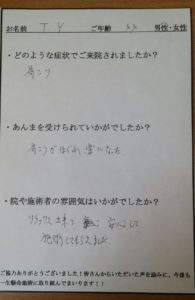 お名前 T Y ご年齢 男性・女性
・どのような症状でご来院されましたか？
肩こり
・あんまを受けられていかがでしたか？
肩こりがほぐれ楽になった
・院や施術者の雰囲気はいかがでしたか？
リラックス出来て安心して
施術してもらえました
ご協力ありがとうございました！皆さんからいただいた声を励みに、今後も
一生懸命施術に取り組んでまいります！！